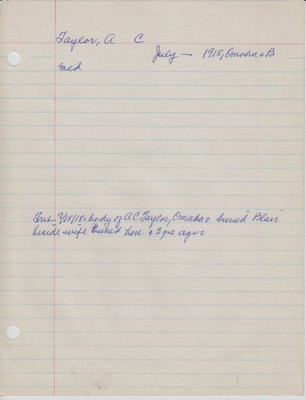 Taylor, A C
July — 1918, Omaha B
med
7/18/18 body of A C Taylor, Omaha buried Blair
beside wife buried here 2 yrs ago